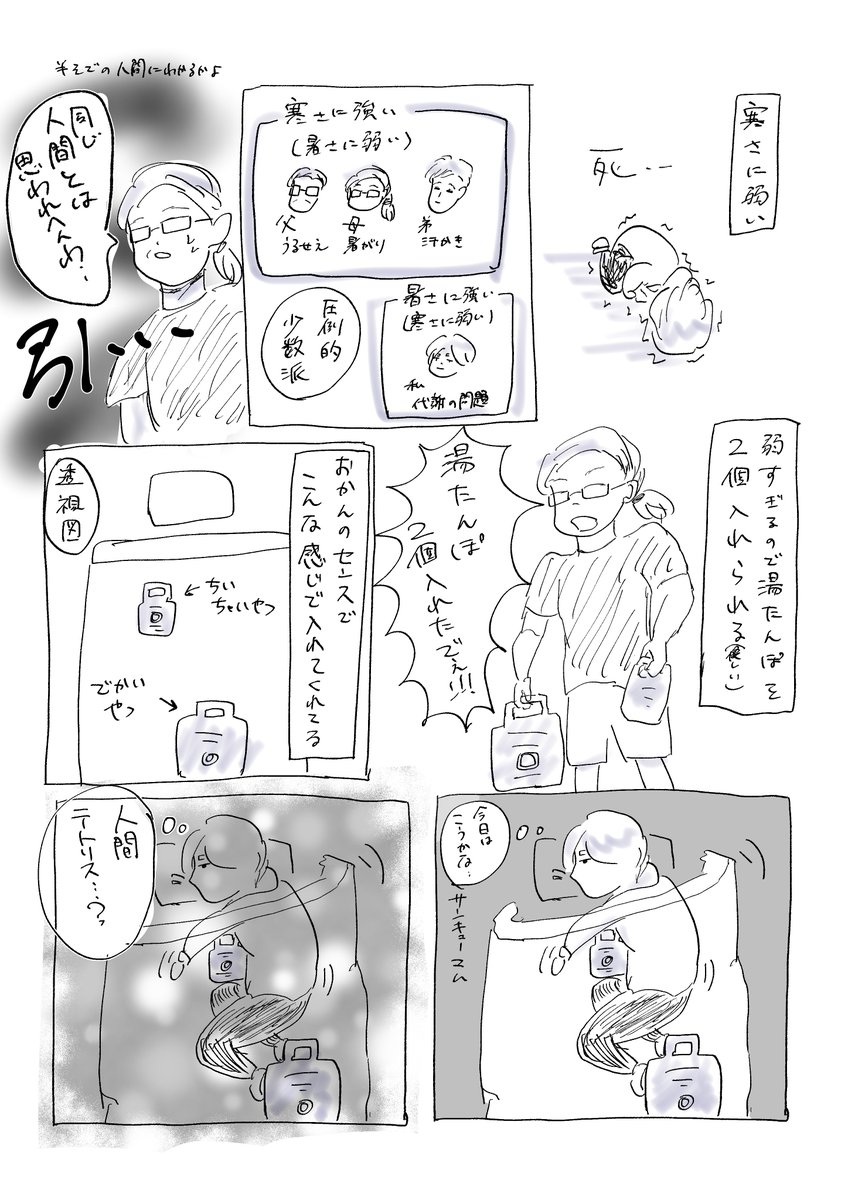 寒さに弱い
死…
寒さに強い
(暑さに弱い)
父
うるせえ
母
暑がり
弟
汗かき
暑さに強い
(寒さに弱い)
私
代謝の問題
圧倒的
少数派
同じ
人間とは
思われへんわ、
引…
弱すぎるので湯たんぽを
2個入れられる(優しい)
湯たんぽ
2個入れたでぇ!!!
おかんのセンスで
こんな感じで入れてくれてる
透視図
ちい
ちゃいやつ
でかい
やつ
今日は
こうかな、
サンキューマム
人間
テトリス…?